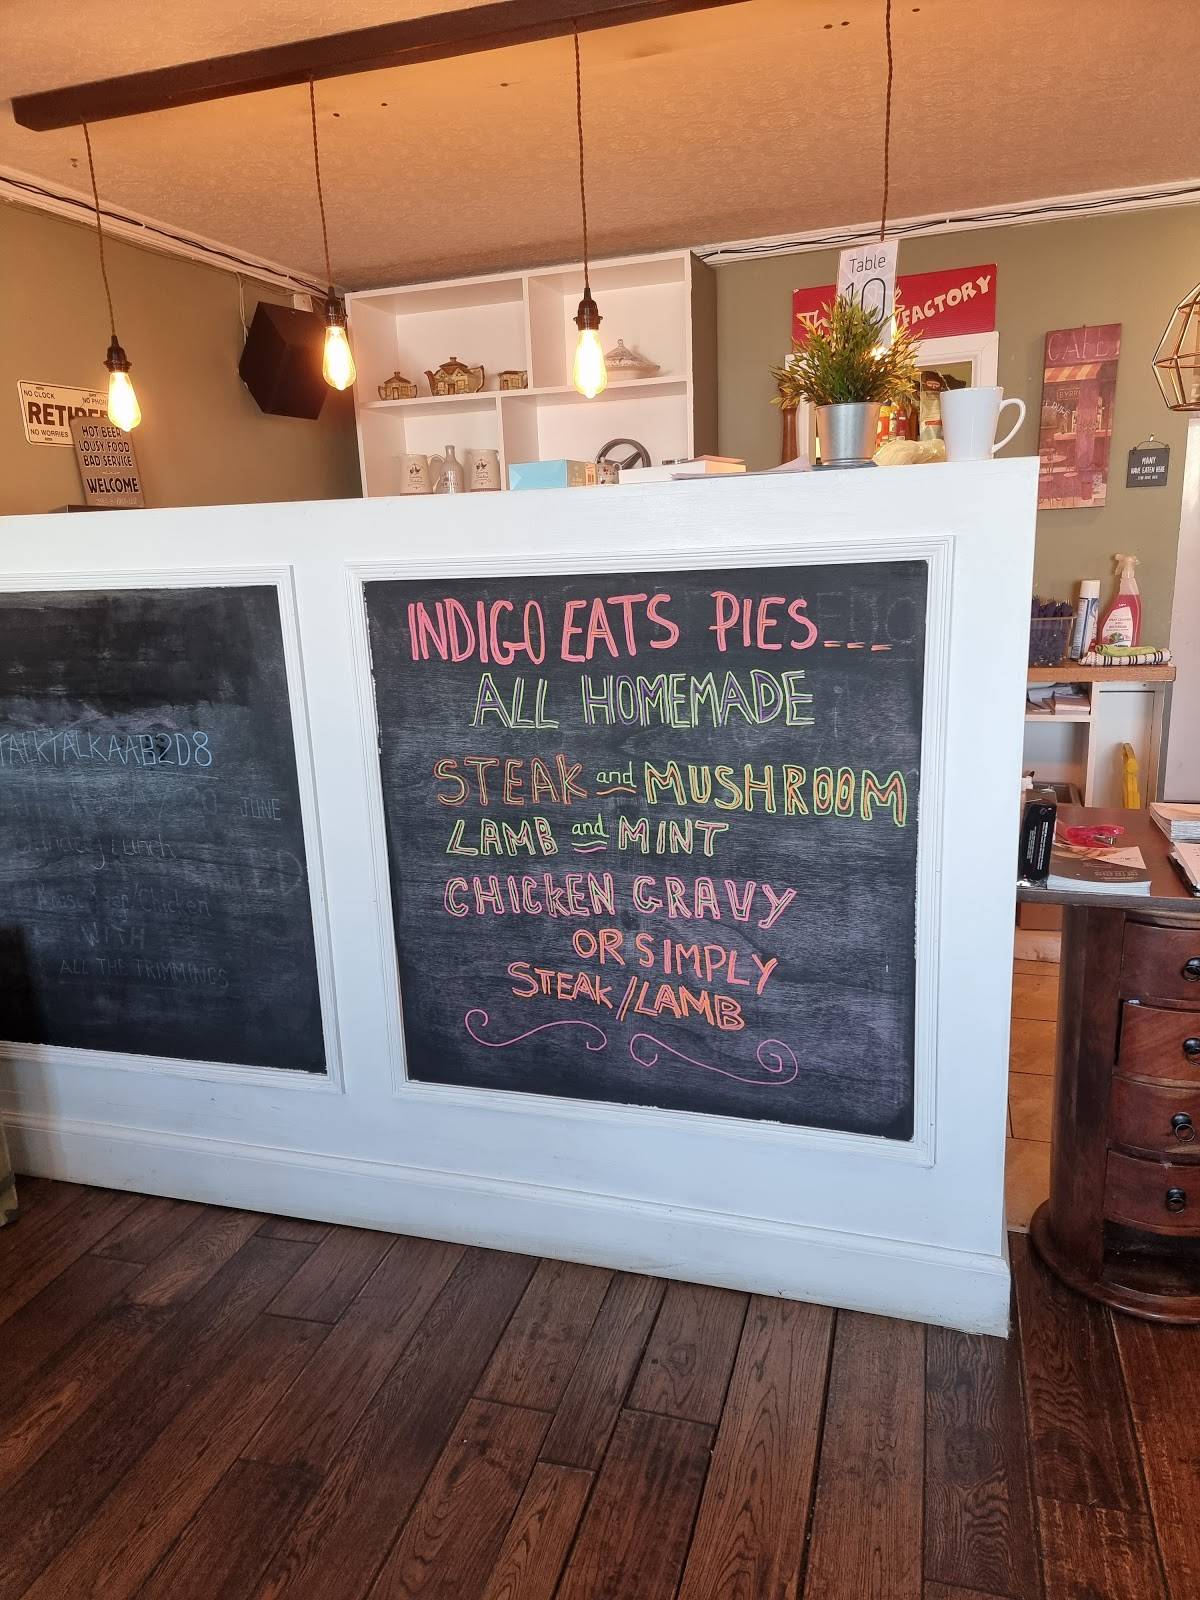 Table
10
FACTORY
CAFE
NO CLOCK
NO PHONE
RETIRED
NO WORRIES
HOT BEER
LOUSY FOOD
BAD SERVICE
WELCOME
MANY
HAVE EATEN HERE
INDIGO EATS PIES....
ALL HOMEMADE
STEAK and MUSHROOM
LAMB and MINT
CHICKEN GRAVY
OR SIMPLY
STEAK/LAMB
TALKTALKAAB2D8
JUNE
Lunch
Chicken
WITH
ALL THE TRIMMINGS